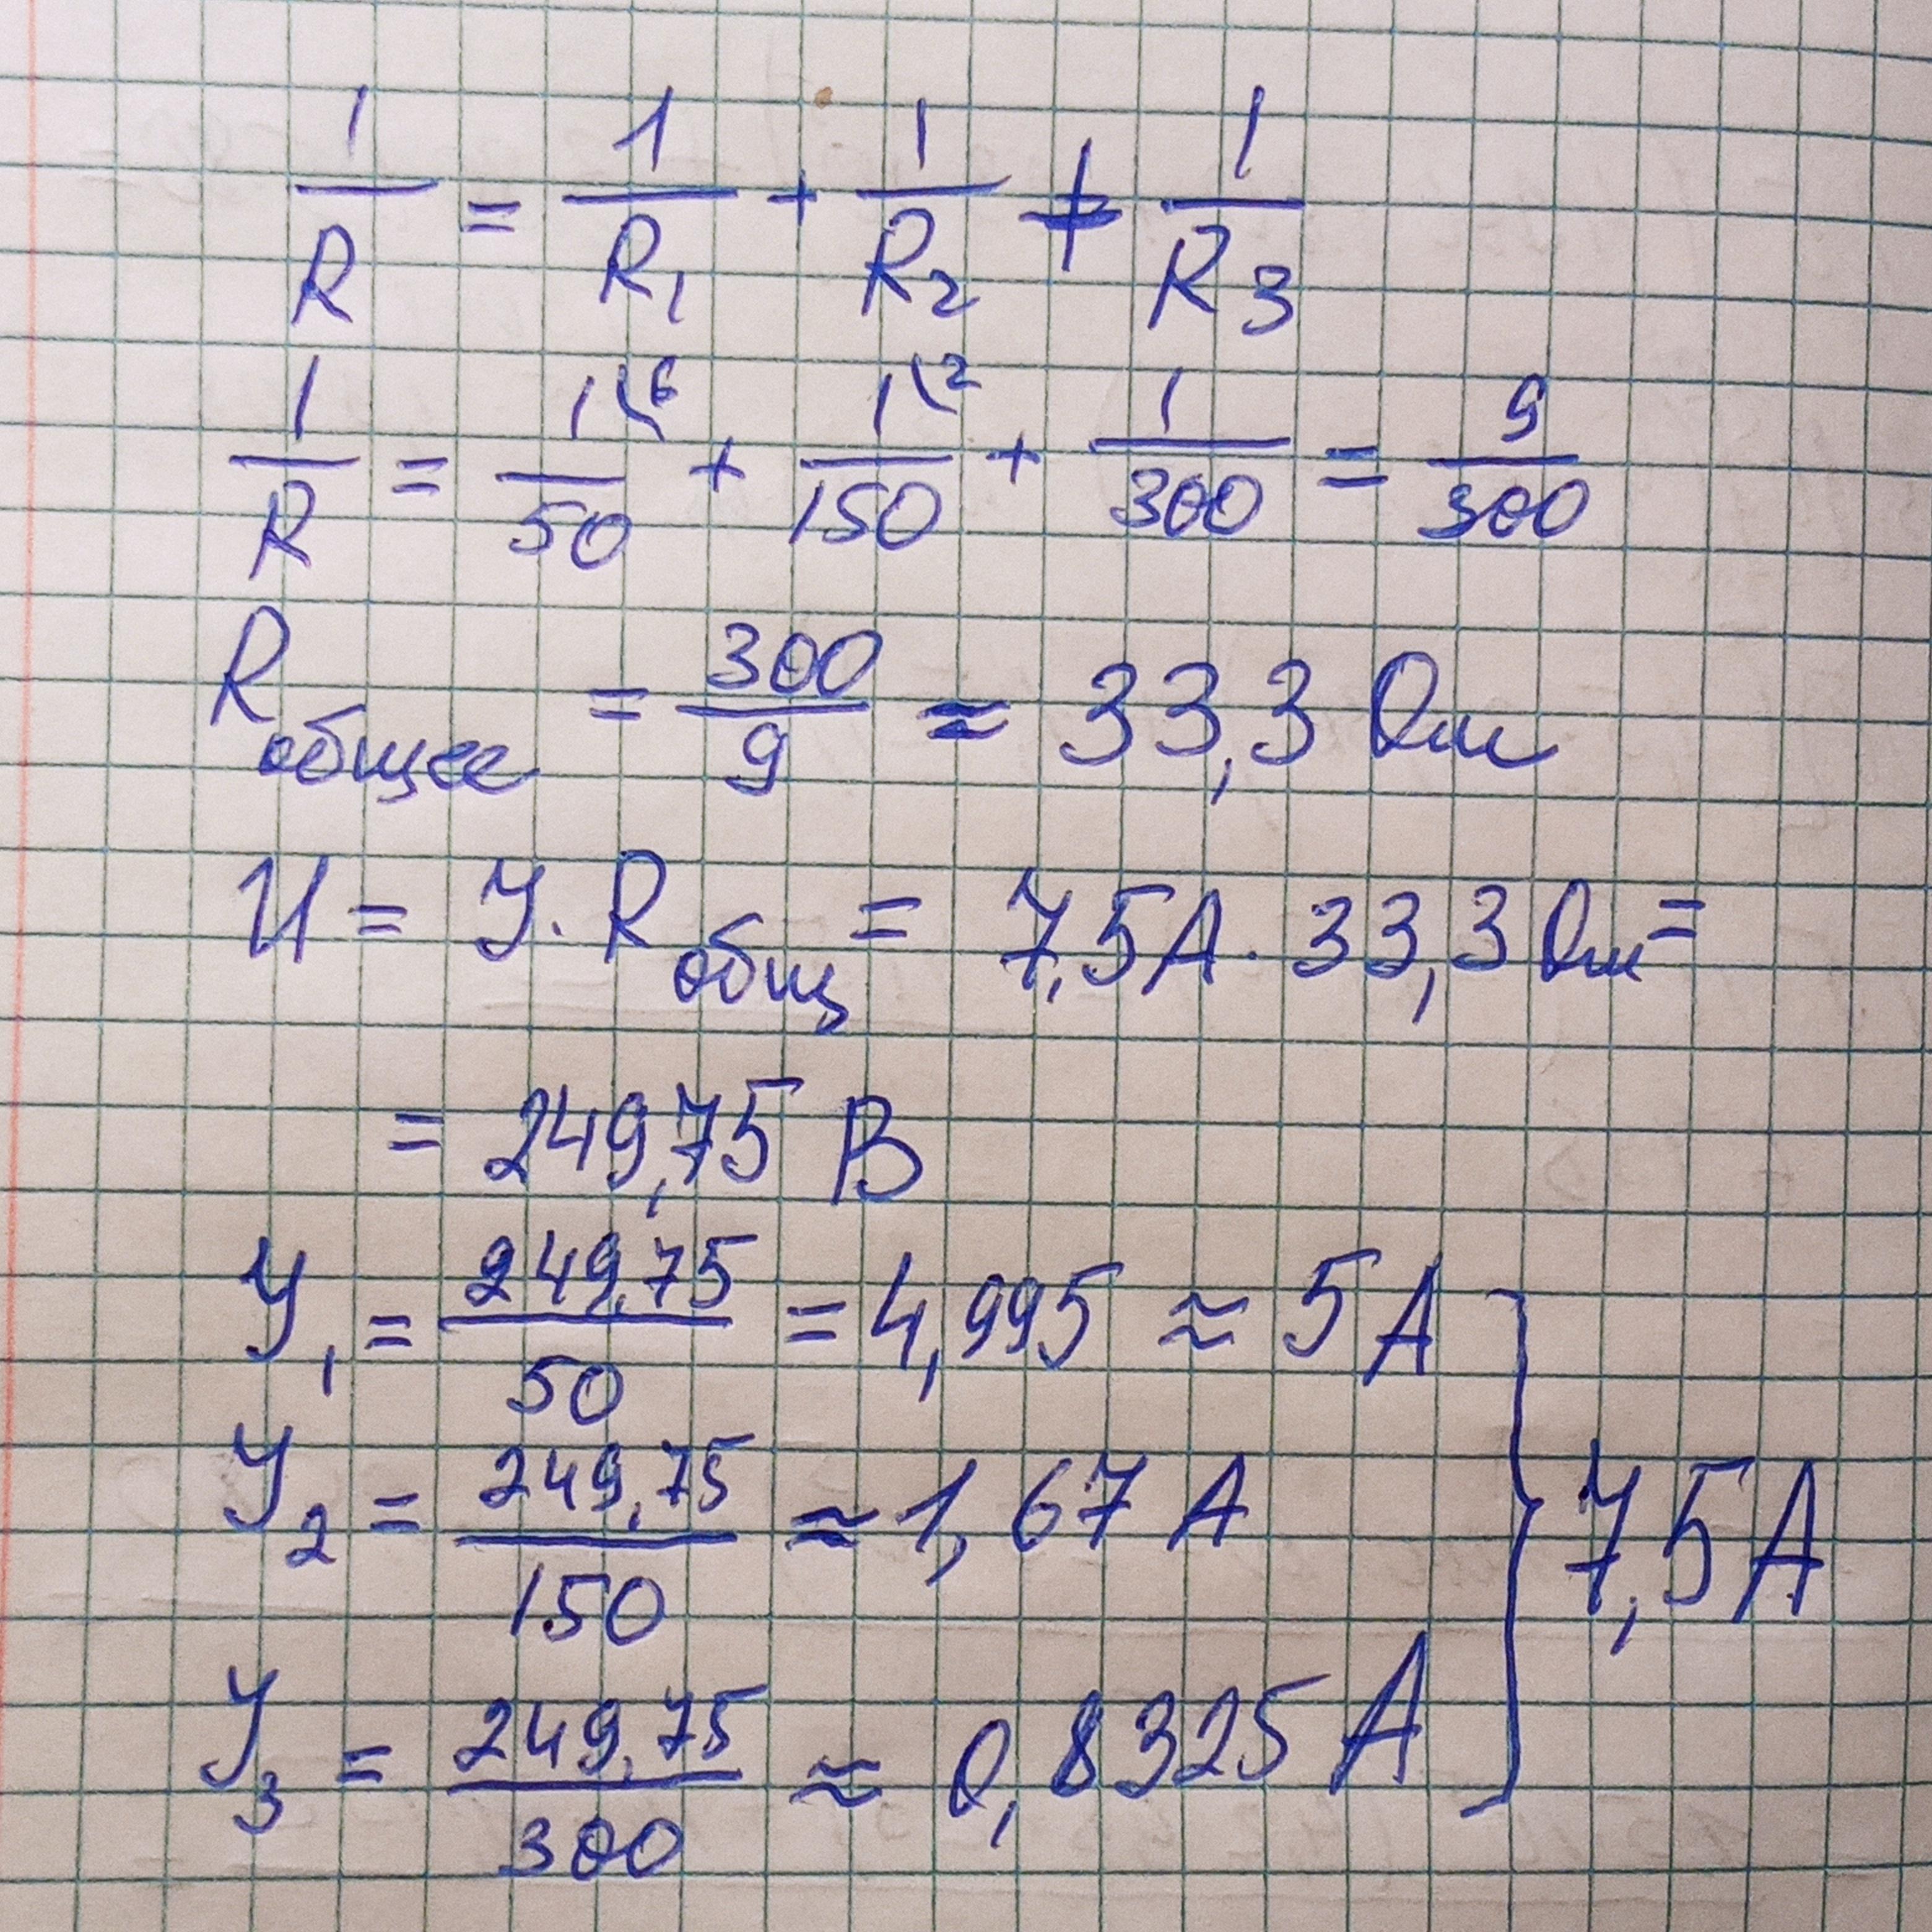 1/R = 1/R₁ + 1/R₂ + 1/R₃
1/R = 1\⁶/50 + 1\²/150 + 1/300 = 9/300
R общее = 300/9 ≈ 33,3 Ом
U = У · R общ = 7,5А · 33,3 Ом =
= 249,75 В
У₁ = 249,75/50 = 4,995 ≈ 5 А
У₂ = 249,75/150 ≈ 1,67 А
У₃ = 249,75/300 ≈ 0,8325 А
} 7,5 А